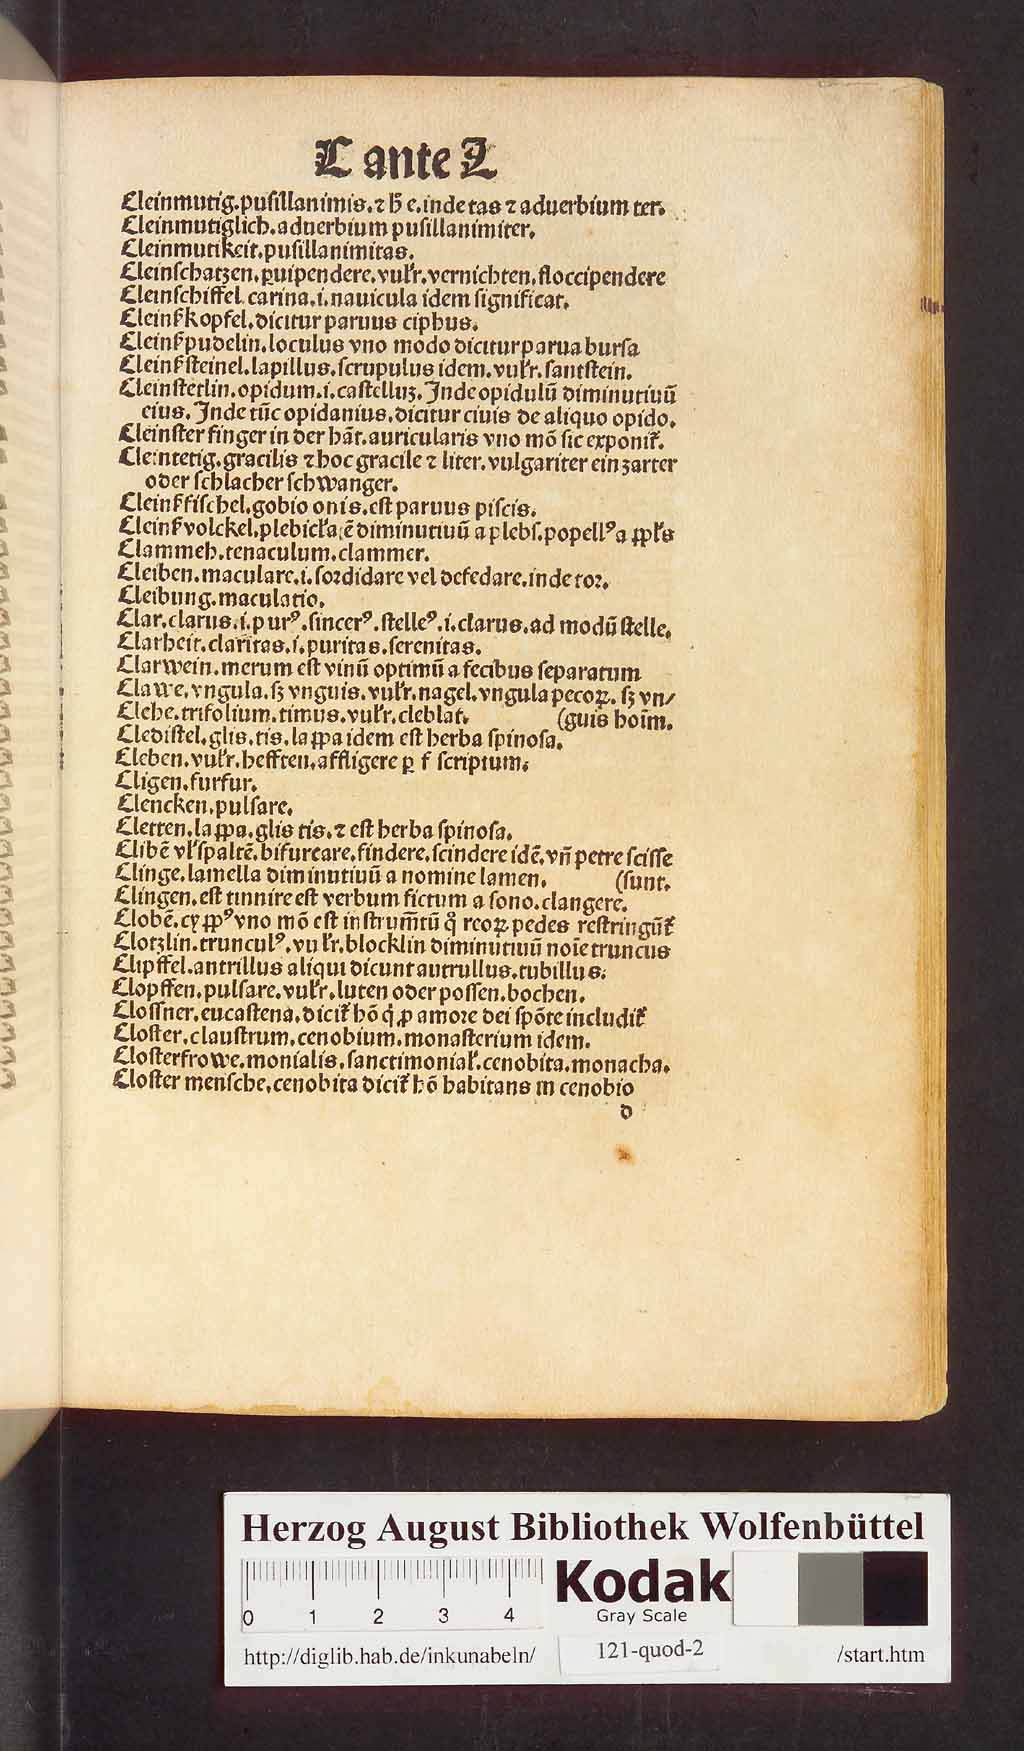 C ante L
Cleinmutig.pusillanimis.⁊ h̄ e.inde tas ⁊ aduerbium ter.
Cleinmutiglich.aduerbium pusillanimiter.
Cleinmutikeit.pusillanimitas.
Cleinschatzen.ꝑuipendere.vulr̄.vernichten.floccipendere
Cleinschiffel carina.i.nauicula idem significat.
Cleinſ kopfel.dicitur paruus ciphus.
Cleinſ pudelin.loculus vno modo dicitur parua bursa
Cleinſ steinel.lapillus.scrupulus idem.vulr̄.santstein.
Cleinstetlin.opidum.i.castelluꝫ.Inde opidulū diminutiuū
eius.Inde tūc opidanius.dicitur ciuis de aliquo opido.
Cleinster finger in der hāt.auricularis vno mō sic exponit̄.
Cleintetig.gracilis ⁊ hoc gracile ⁊ liter.vulgariter ein zarter
oder schlacher schwanger.
Cleinſ fischel.gobio onis.est paruus piscis.
Cleinſ volckel.plebicl̄a ē diminutiuū a plebs.popellꝰ a ppl̄s
Clammeh.tenaculum.clammer.
Cleiben.maculare.i.sordidare vel defedare.inde tor.
Cleibung.maculatio.
Clar.clarus.i.purꝰ.sincerꝰ.stelleꝰ.i.clarus.ad modū stelle.
Clarheit.claritas.i.puritas.serenitas.
Clarwein.merum est vinū optimū a fecibus separatum
Clawe.vngula.sꝫ vnguis.vulr̄.nagel.vngula pecoꝝ.sꝫ vn/
Clehe.trifolium.timus.vulr̄.cleblat. (guis hoim.
Cledistel.glis.tis.lappa idem est herba spinosa.
Cleben.vulr̄.hefften.affligere ꝑ f scriptum.
Cligen.furfur.
Clencken.pulsare.
Cletten.lappa.glis tis.⁊ est herba spinosa.
Clibē vl̄ spaltē.bifurcare.findere.scindere idē.vn̄ petre scisse
Clinge.lamella diminutiuū a nomine lamen. (sunt.
Clingen.est tinnire est verbum fictum a sono.clangere.
Clobē.cyppꝰ vno mō est instrum̄tū q̊ reoꝝ pedes restringūt̄
Clotzlin.trunculꝰ.vulr̄.blocklin diminutiuū noīe truncus
Clipffel.antrillus aliqui dicunt autrullus.tubillus.
Clopffen.pulsare.vulr̄.luten oder possen.bochen.
Clossner.eucastena.dicit̄ hō q̇ ꝓ amore dei spōte includit̄
Closter.claustrum.cenobium.monasterium idem.
Closterfrowe.monialis.sanctimonial̄.cenobita.monacha.
Closter mensche.cenobita dicit̄ hō habitans in cenobio
d
Herzog August Bibliothek Wolfenbüttel
0 1 2 3 4
Kodak
Gray Scale
http://diglib.hab.de/inkunabeln/ 121-quod-2 /start.htm